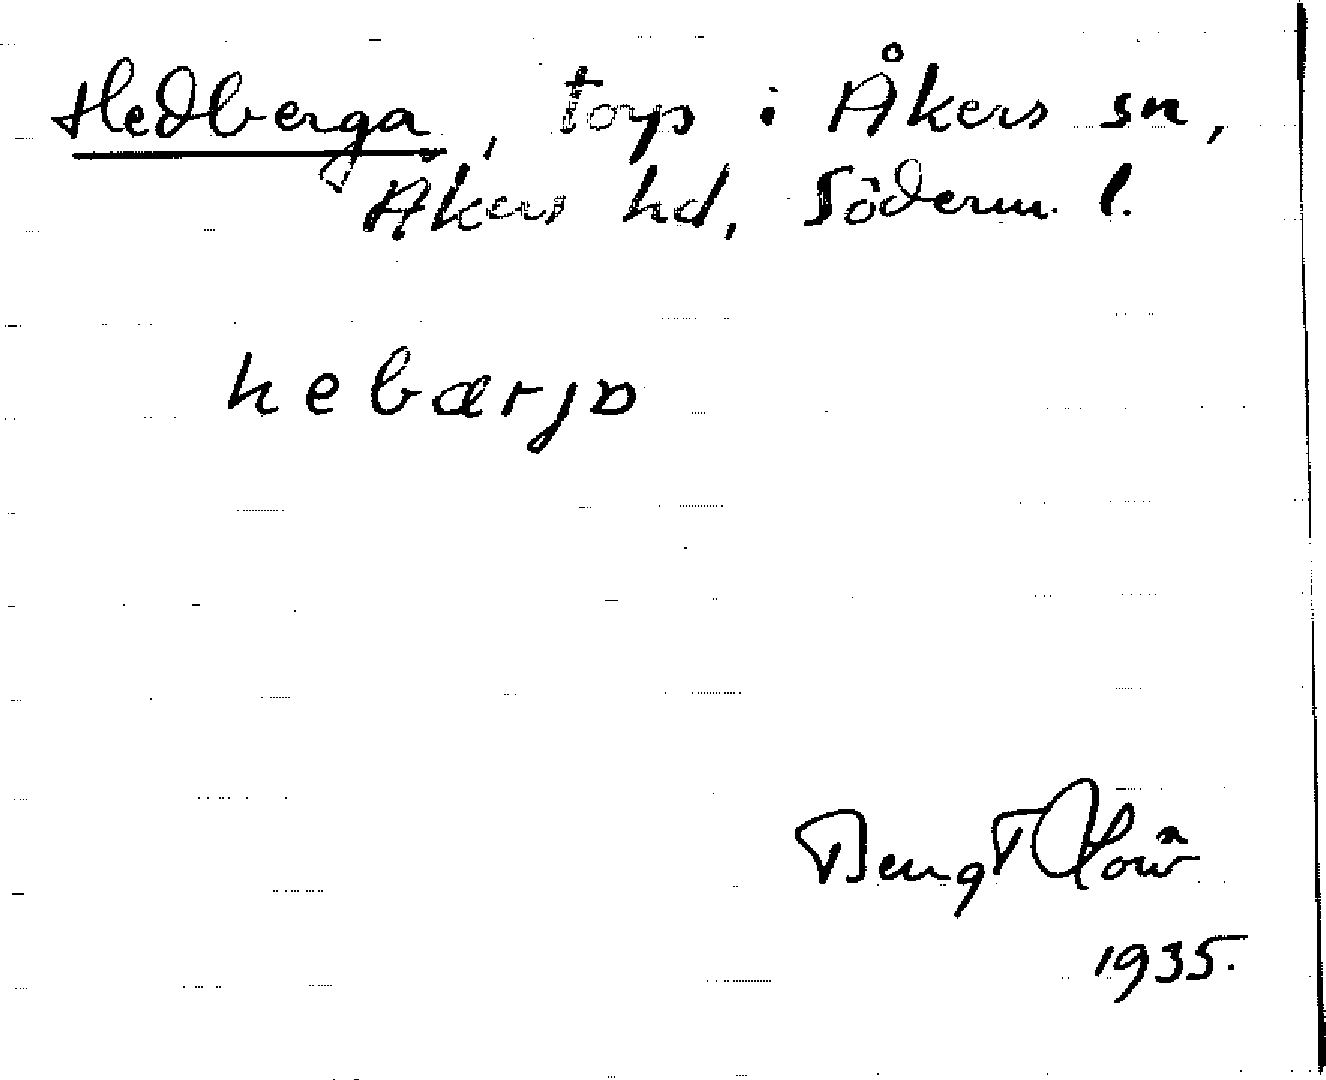 Hedberga, torp i Åkers sn,
Åkers hd, Söderm. l.
hebærja
Bengt
1935.